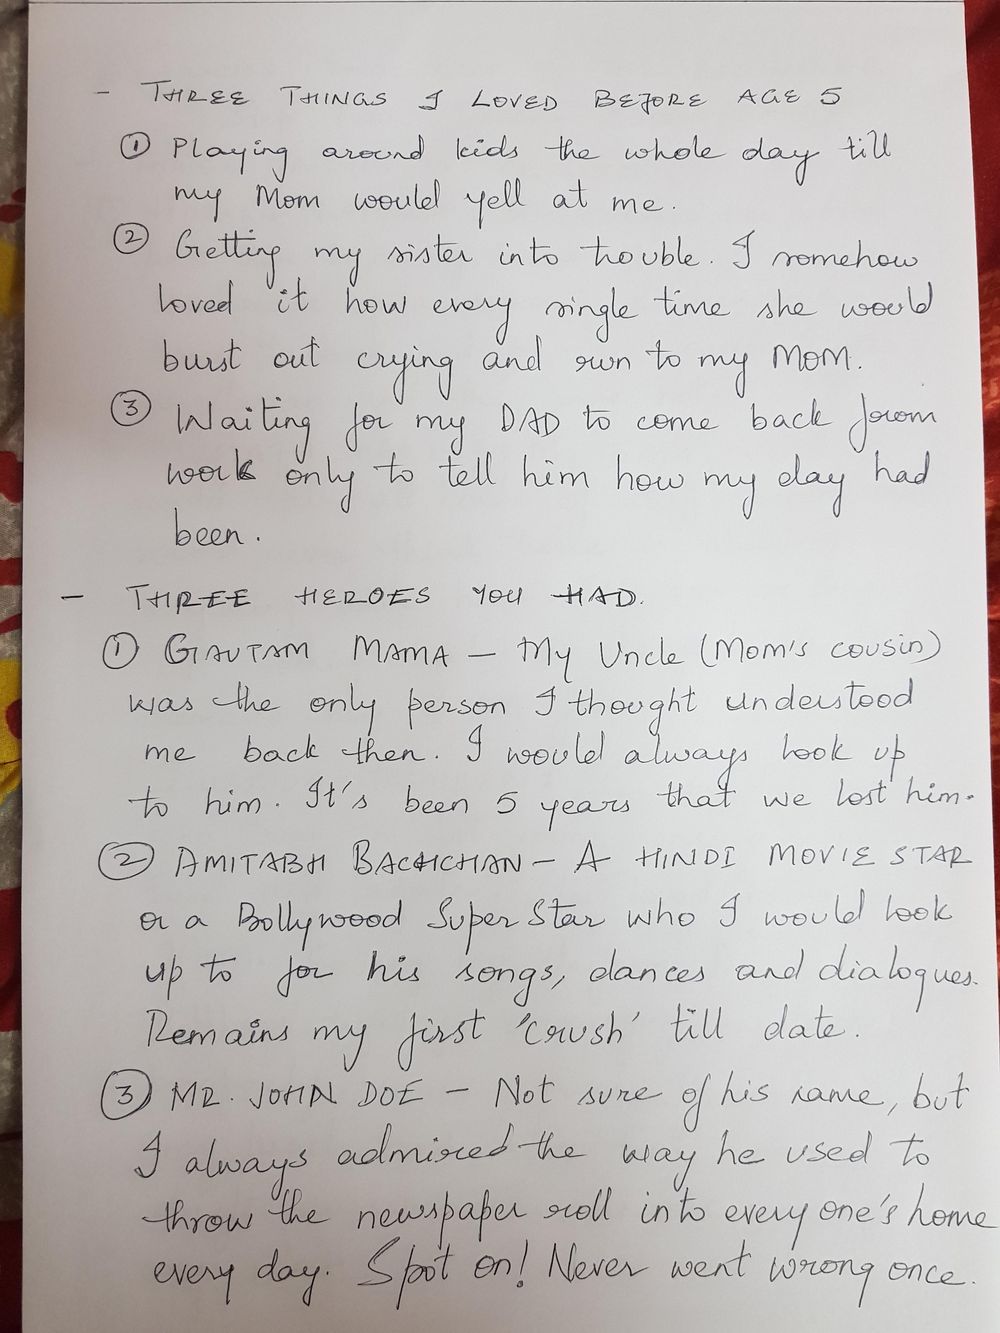 - THREE THINGS I LOVED BEFORE AGE 5
① Playing around kids the whole day till
my Mom would yell at me.
② Getting my sister into trouble. I somehow
loved it how every single time she would
burst out crying and run to my MOM.
③ Waiting for my DAD to come back from
work only to tell him how my day had
been.
- THREE HEROES YOU HAD.
① GAUTAM MAMA - My Uncle (Mom's cousin)
was the only person I thought understood
me back then. I would always look up
to him. It's been 5 years that we lost him.
② AMITABH BACHCHAN - A HINDI MOVIE STAR
or a Bollywood Super Star who I would look
up to for his songs, dances and dialogues.
Remains my first 'crush' till date.
③ MR. JOHN DOE - Not sure of his name, but
I always admired the way he used to
throw the newspaper roll into every one's home
every day. Spot on! Never went wrong once.